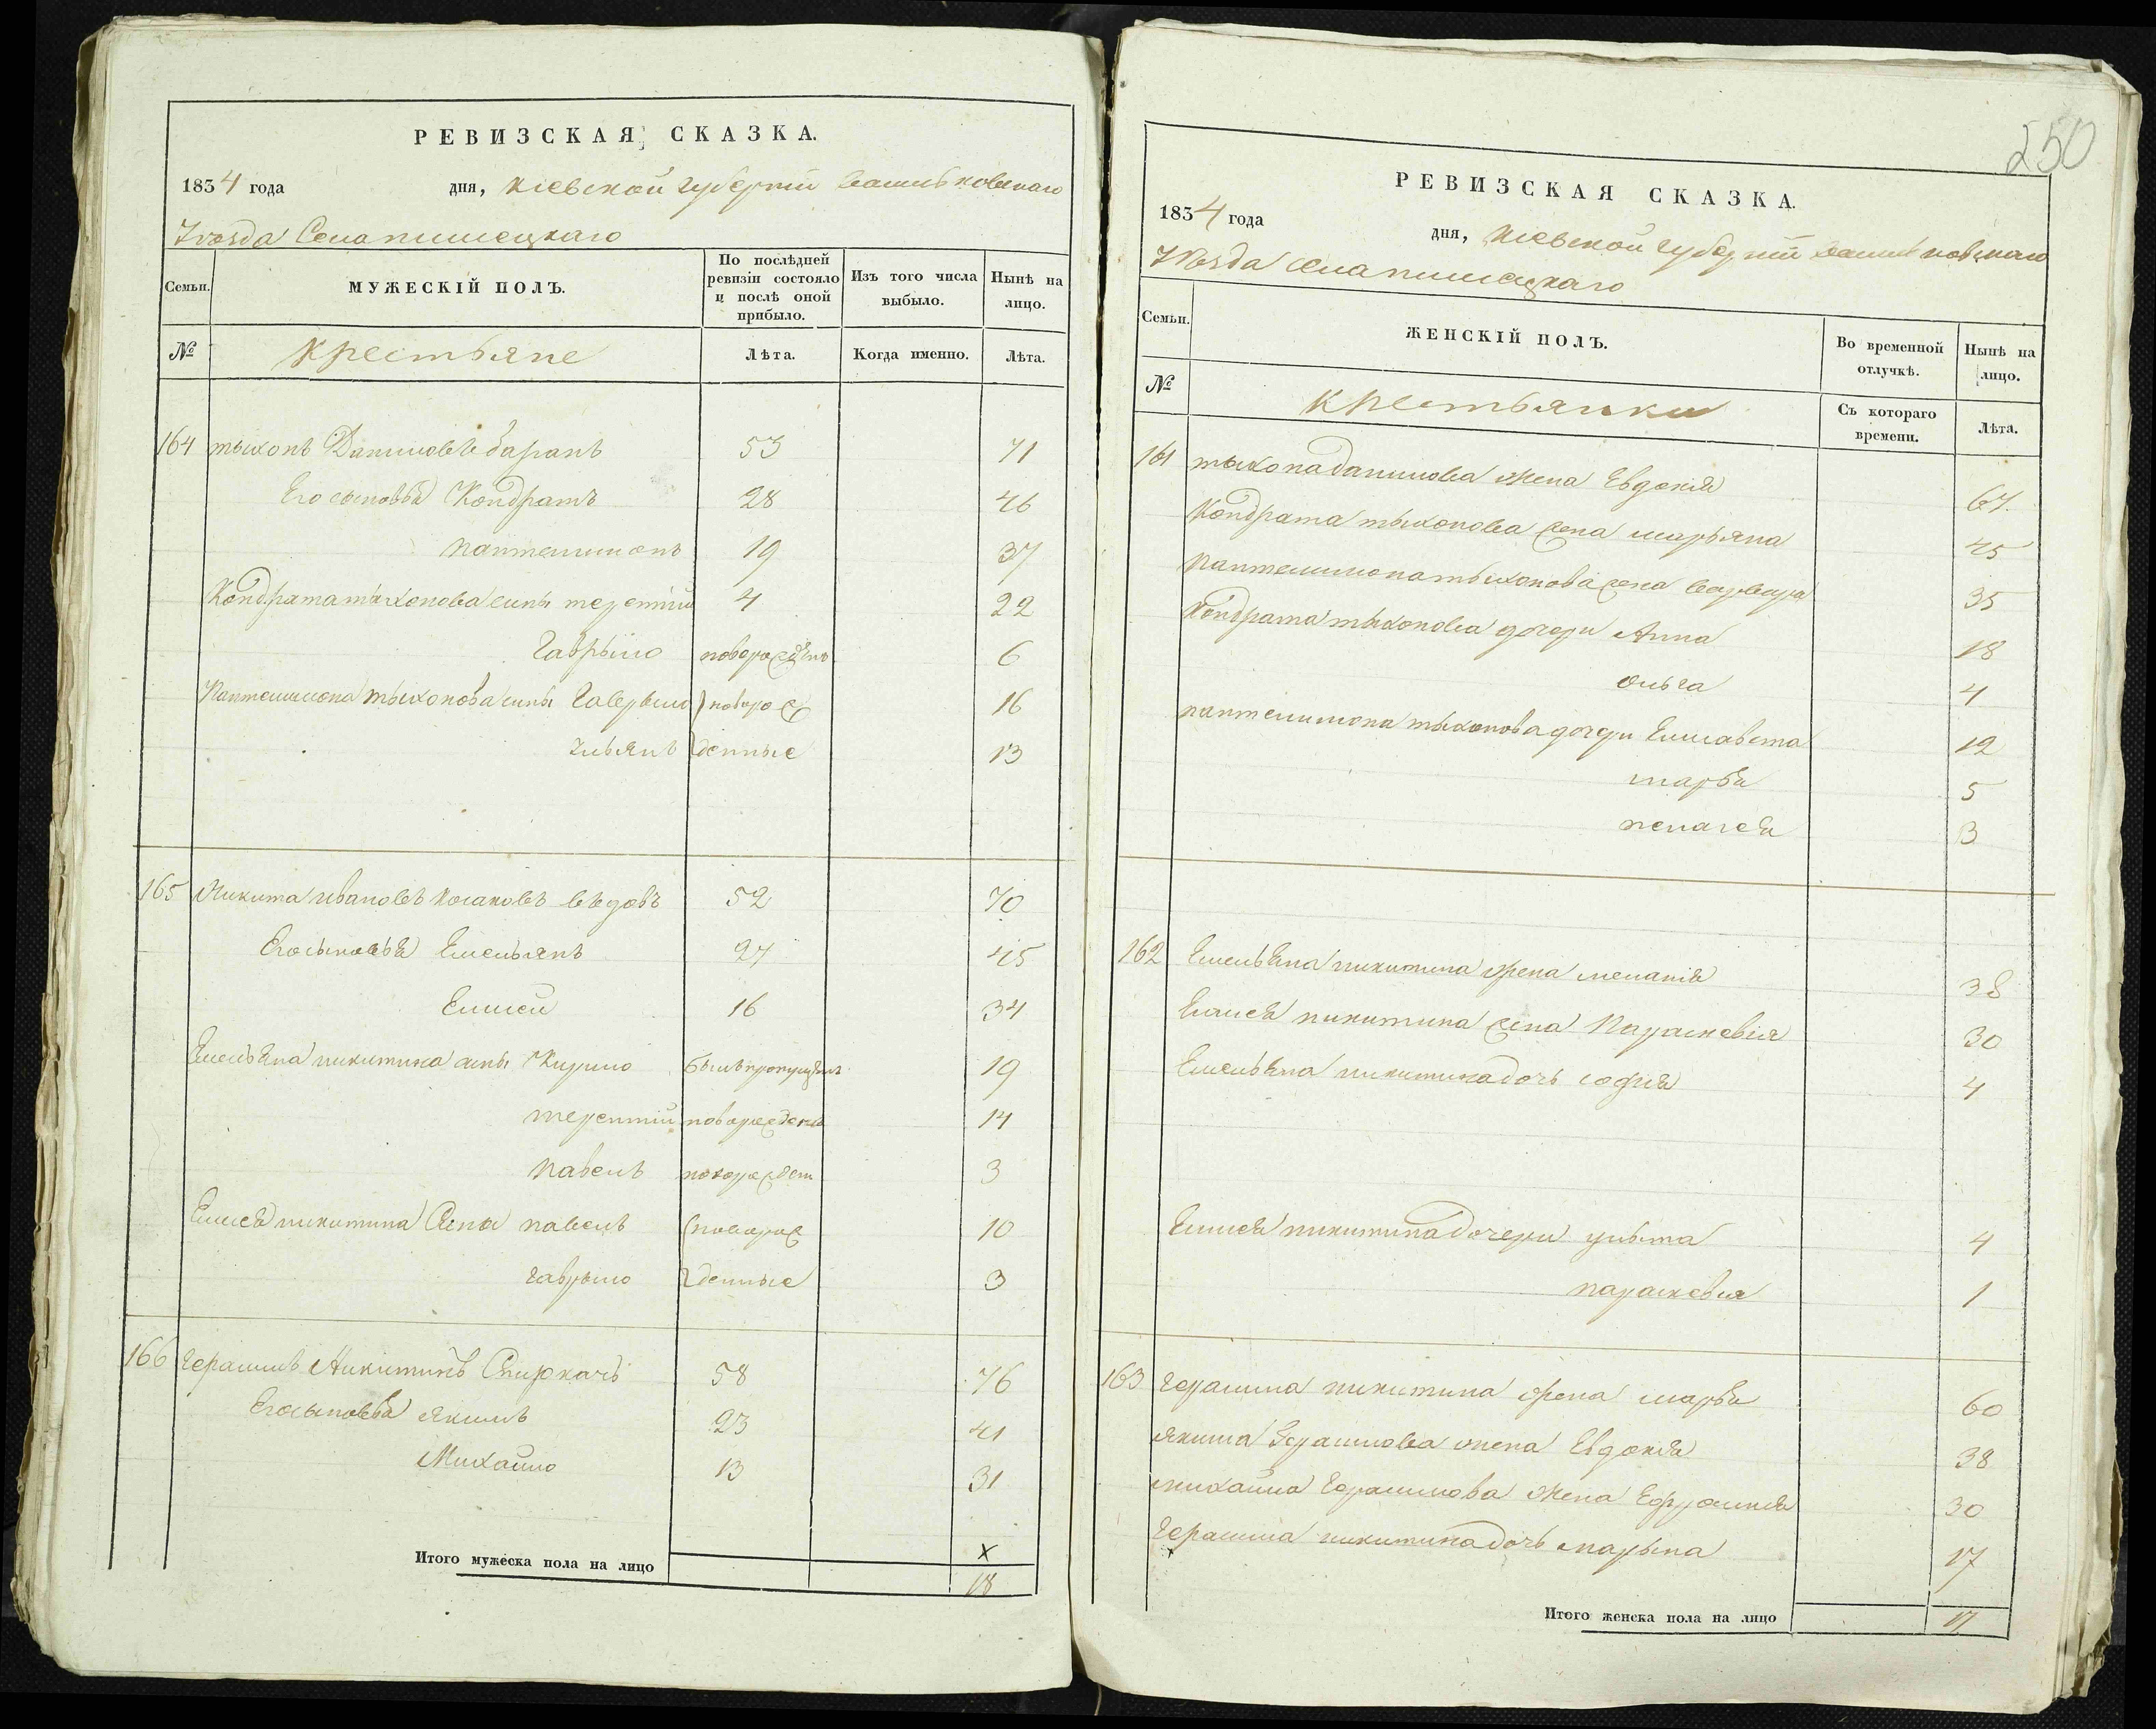 РЕВИЗСКАЯ СКАЗКА.
1834 года дня, Кіевской губерніи Васильковскаго
Уѣзда Села
Семьи. МУЖЕСКІЙ ПОЛЪ. По послѣдней ревизіи состояло и послѣ оной прибыло. Изъ того числа выбыло. Нынѣ на лицо.
№ Крестьяне Лѣта. Когда именно. Лѣта.
164 тыхонъ Даниловъ баранъ 53 71
Его сыновья Кондратъ 28 46
пантелимонъ 19 37
Кондрата тыхонова сины терентій 4 22
Гаврыло новорожденъ 6
Пантелимона тыхонова сины Гаврыло новорож 16
Ульянъ денные 13
165 Никита ивановъ Козаковъ вдовъ 52 70
Его сыновья Емельянъ 27 45
Елисей 16 34
Емельяна никитина сины Кирило былъ пропущенъ 19
терентій новорожденъ 14
Павелъ новорожден 3
Елисея никитина Сына павелъ новорож 10
гаврыло денные 3
166 Герасимъ Никитинъ 58 76
Его сыновья якимъ 23 41
Михайло 13 31
х
Итого мужеска пола на лицо 18
250
РЕВИЗСКАЯ СКАЗКА.
1834 года дня, Кіевской губерніи Васильковскаго
Уѣзда села
Семьи. ЖЕНСКІЙ ПОЛЪ. Во временной отлучкѣ. Нынѣ на лицо.
№ Крестьянки Съ котораго времени. Лѣта.
161 тыхона данилова жена Евдокія 67
Кондрата тыхонова жена марьяна 45
Пантелимона тыхонова жена варвара 35
Кондрата тыхонова дочери Анна 18
ольга 4
пантелимона тыхонова дочери Елисавета 12
марья 5
пелагея 3
162 Емельяна никитина жена меланія 38
Елисея никитина жена Параскевія 30
Емельяна никитина дочь софія 4
Елисея никитина дочери ульта 4
параскевия 1
163 Герасима никитина жена марья 60
якима Герасимова жена Евдокія 38
михайла Герасимова жена Ефросинія 30
Герасима никитина дочь марына 17
Итого женска пола на лицо 17